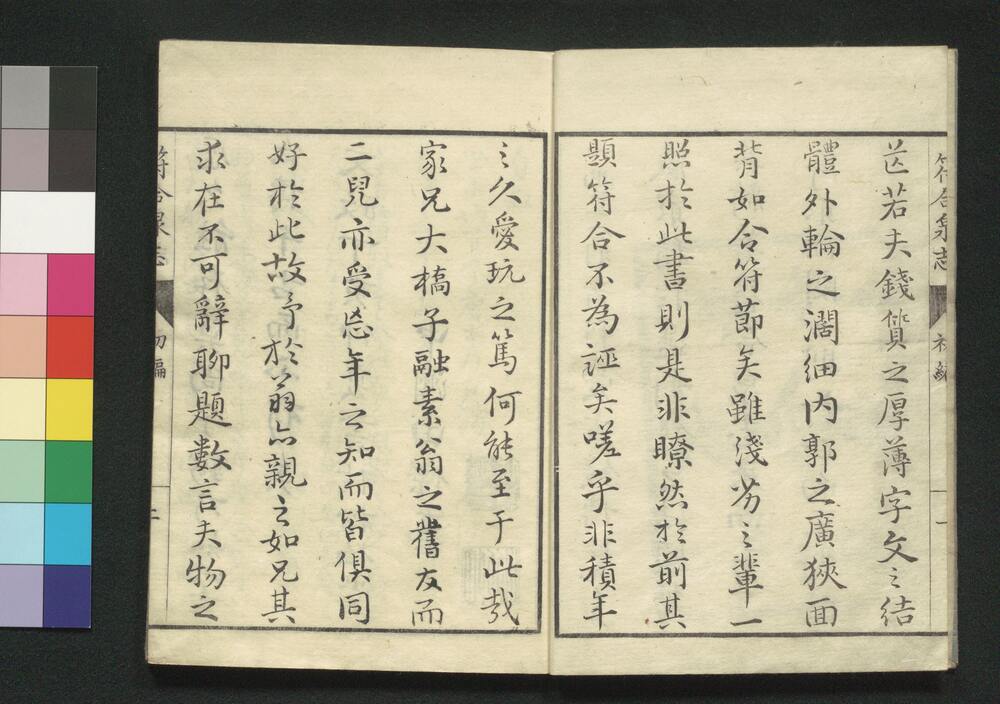 符合泉志 初編 一
芒若夫錢質之厚薄字文之結
體外輪之濶細内郭之廣狹面
背如合符節矣雖淺劣之輩一
照於此書則是非瞭然於前其
顯符合不為誣矣嗟乎非積年
之久愛玩之篤何能至于此哉
家兄大橋子融素翁之舊友而
二兒亦受忘年之知而皆俱同
好於此故予於翁亦親之如兄其
求在不可辭聊題數言夫物之
符合泉志 初編 二